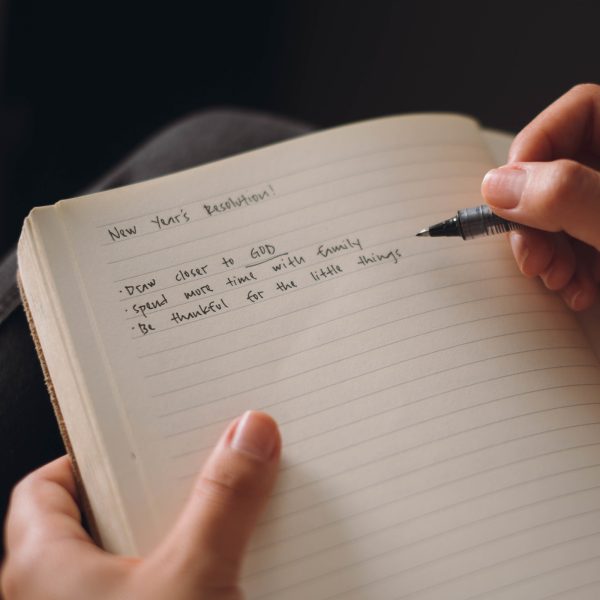 New Year's Resolution!
· Draw closer to GOD
· spend more time with family
· Be thankful for the little things